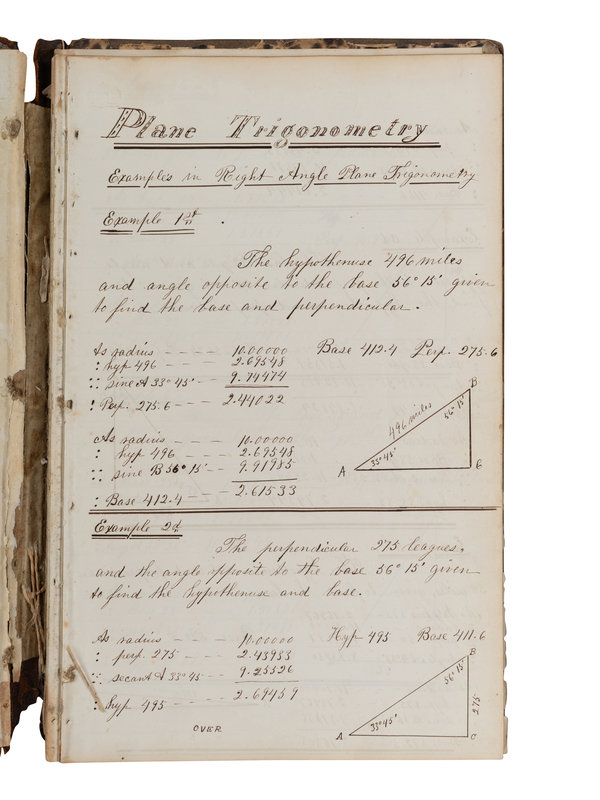 Plane Trigonometry
Examples in Right Angle Plane Trigonometry
Example 1st
The hypothenuse 496 miles
and angle opposite to the base 56° 15' given
to find the base and perpendicular.
As radius - - - - 10.00000 Base 412.4 Perp. 275.6
: hyp 496 - - - - 2.69548
:: sine A 33° 45' - - 9.74474
: Perp. 275.6 - - - 2.44022
As radius - - - - 10.00000
: hyp 496 - - - - 2.69548
:: sine B 56° 15' - - 9.91985
: Base 412.4 - - - 2.61533
B
56° 15'
496 miles
33° 45'
A
C
Example 2d
The perpendicular 275 leagues,
and the angle opposite to the base 56° 15' given
to find the hypothenuse and base.
As radius - - - - 10.00000 Hyp 495 Base 411.6
: perp. 275 - - - 2.43933
:: secant A 33° 45' - - 9.25526
: hyp 495 - - - - 2.69459
B
56° 15'
275
33° 45'
A
C
OVER